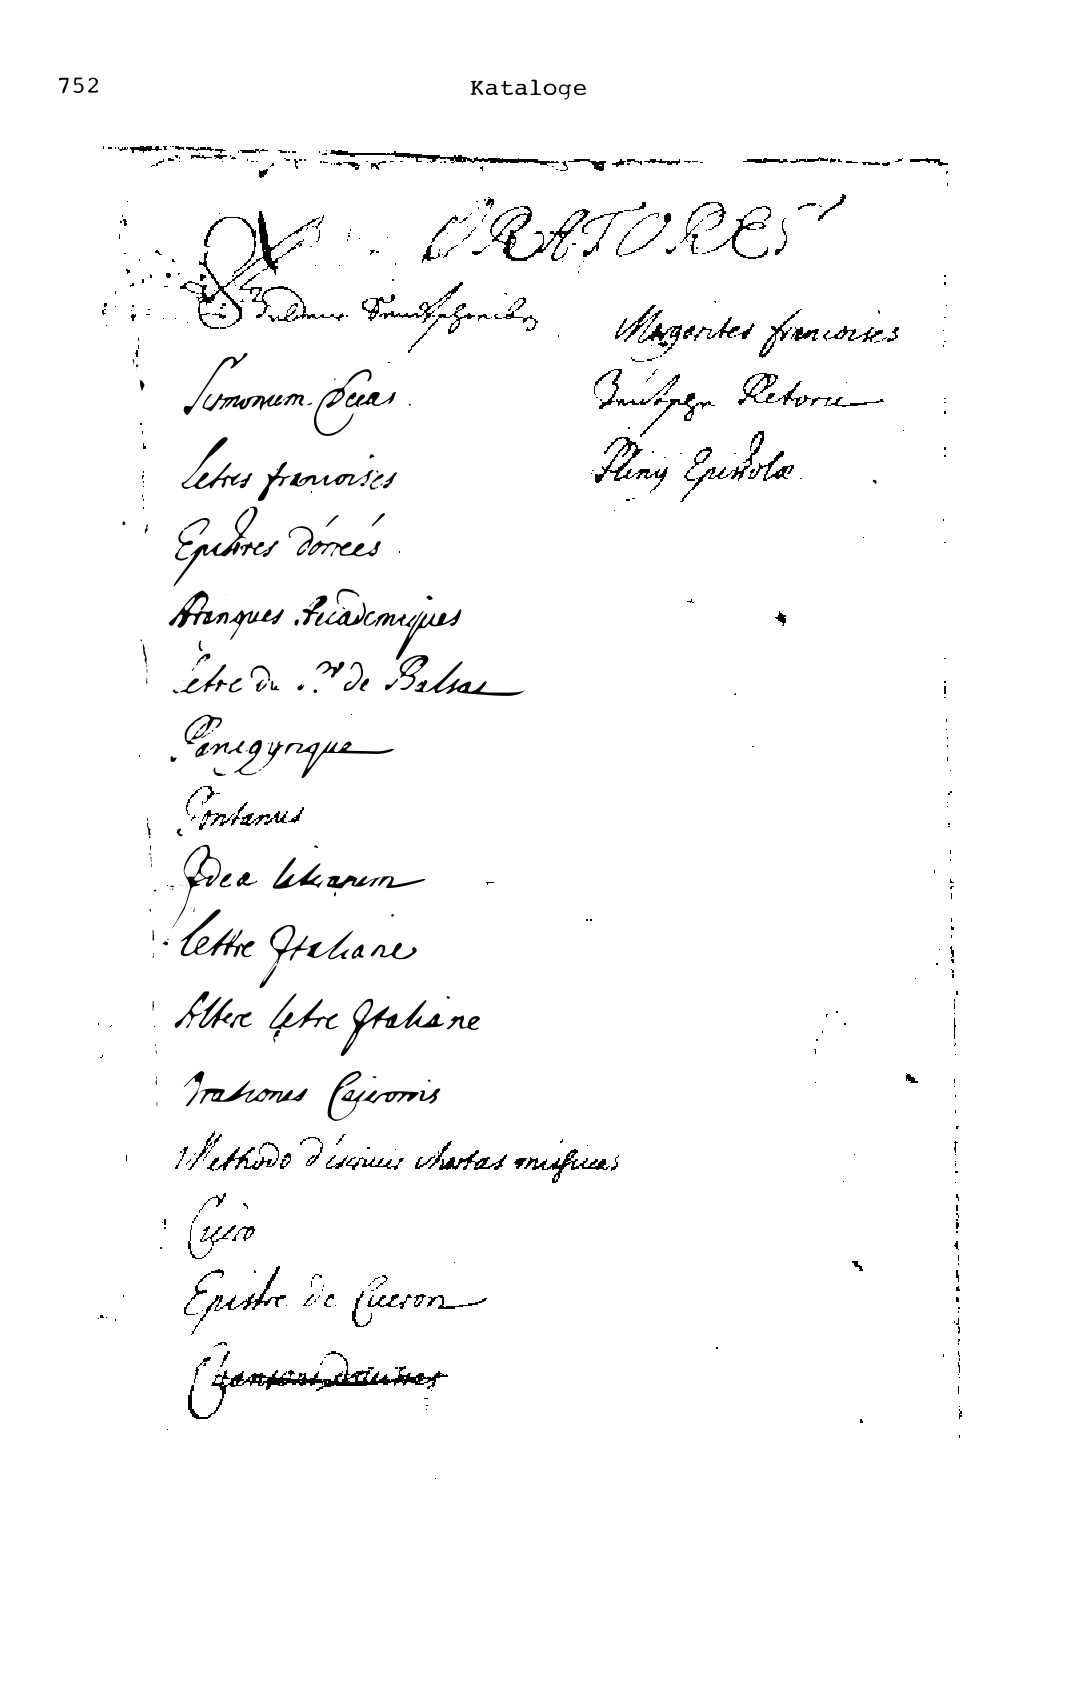 752 Kataloge
ORATORES
Guldene Sendtschreiben
Sermonum Decas
Letres francoises
Epistres dorreés
Aranques Academiques
Letre du Sr de Balsac
Panegyrique
Pontanus
Idea literarum
Lettre Italiane
Altere letre Italiane
Orationes Ciceronis
Methodo d'éscrivir chartas missivas
Cicero
Epistre de Ciceron
Chansons
Margerites francoises
Teutsche Retoric
Plinij Epistolæ